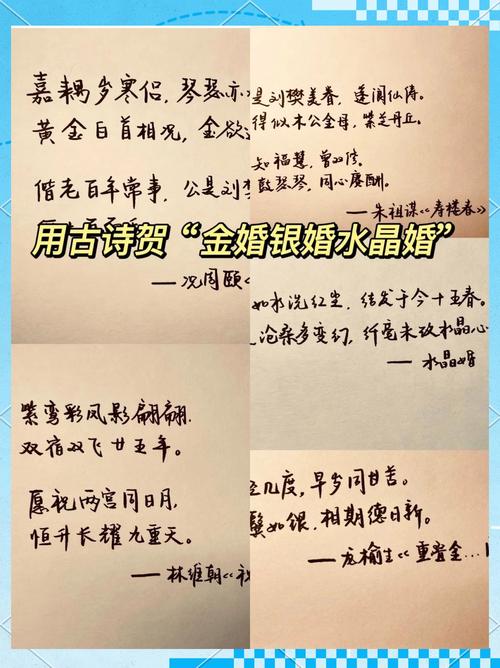 嘉耦岁寒侣，琴瑟亦
黄金白首相况，金欲
偕老百年常事，公是刘
——况周颐《
是刘樊美眷，蓬阆仙俦。
得似木公金母，紫芝丹丘。
知福慧，曾双修。
鼓琴瑟，同心赓酬。
——朱祖谋《寿楼春》
用古诗贺“金婚银婚水晶婚”
如水洗红尘，结发于今十五春。
沧桑多变幻，纤毫未改水晶心
——水晶婚
紫鸾彩凤影翩翩，
双宿双飞廿五年。
愿祝两宫同日月，
恒升长耀九重天。
——林维朝《祝
几度，早岁同甘苦。
鬓如银，相期德日新。
——龙榆生《重
金…